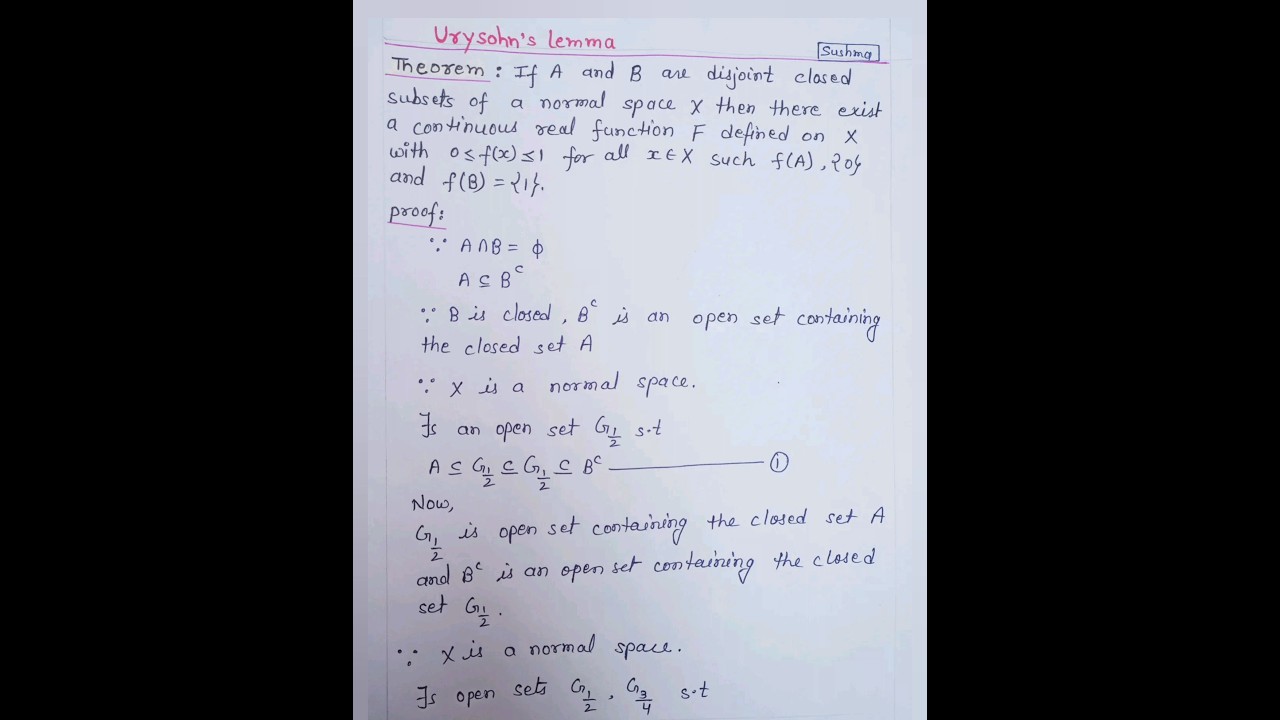 Urysohn's lemma
Sushma
Theorem: If A and B are disjoint closed
subsets of a normal space X then there exist
a continuous real function F defined on X
with 0≤f(x)≤1 for all x∈X such f(A),{0}
and f(B)={1}.
proof:
∵ A∩B= ϕ
A⊆B^c
∵ B is closed, B^c is an open set containing
the closed set A
∵ X is a normal space.
∃s an open set G_{1/2} s.t
A ⊆ G_{1/2} ⊆ G_{1/2} ⊆ B^c ——— ①
Now,
G_{1/2} is open set containing the closed set A
and B^c is an open set containing the closed
set G_{1/2}.
∵ X is a normal space.
∃s open sets G_{1/2}, G_{3/4} s.t